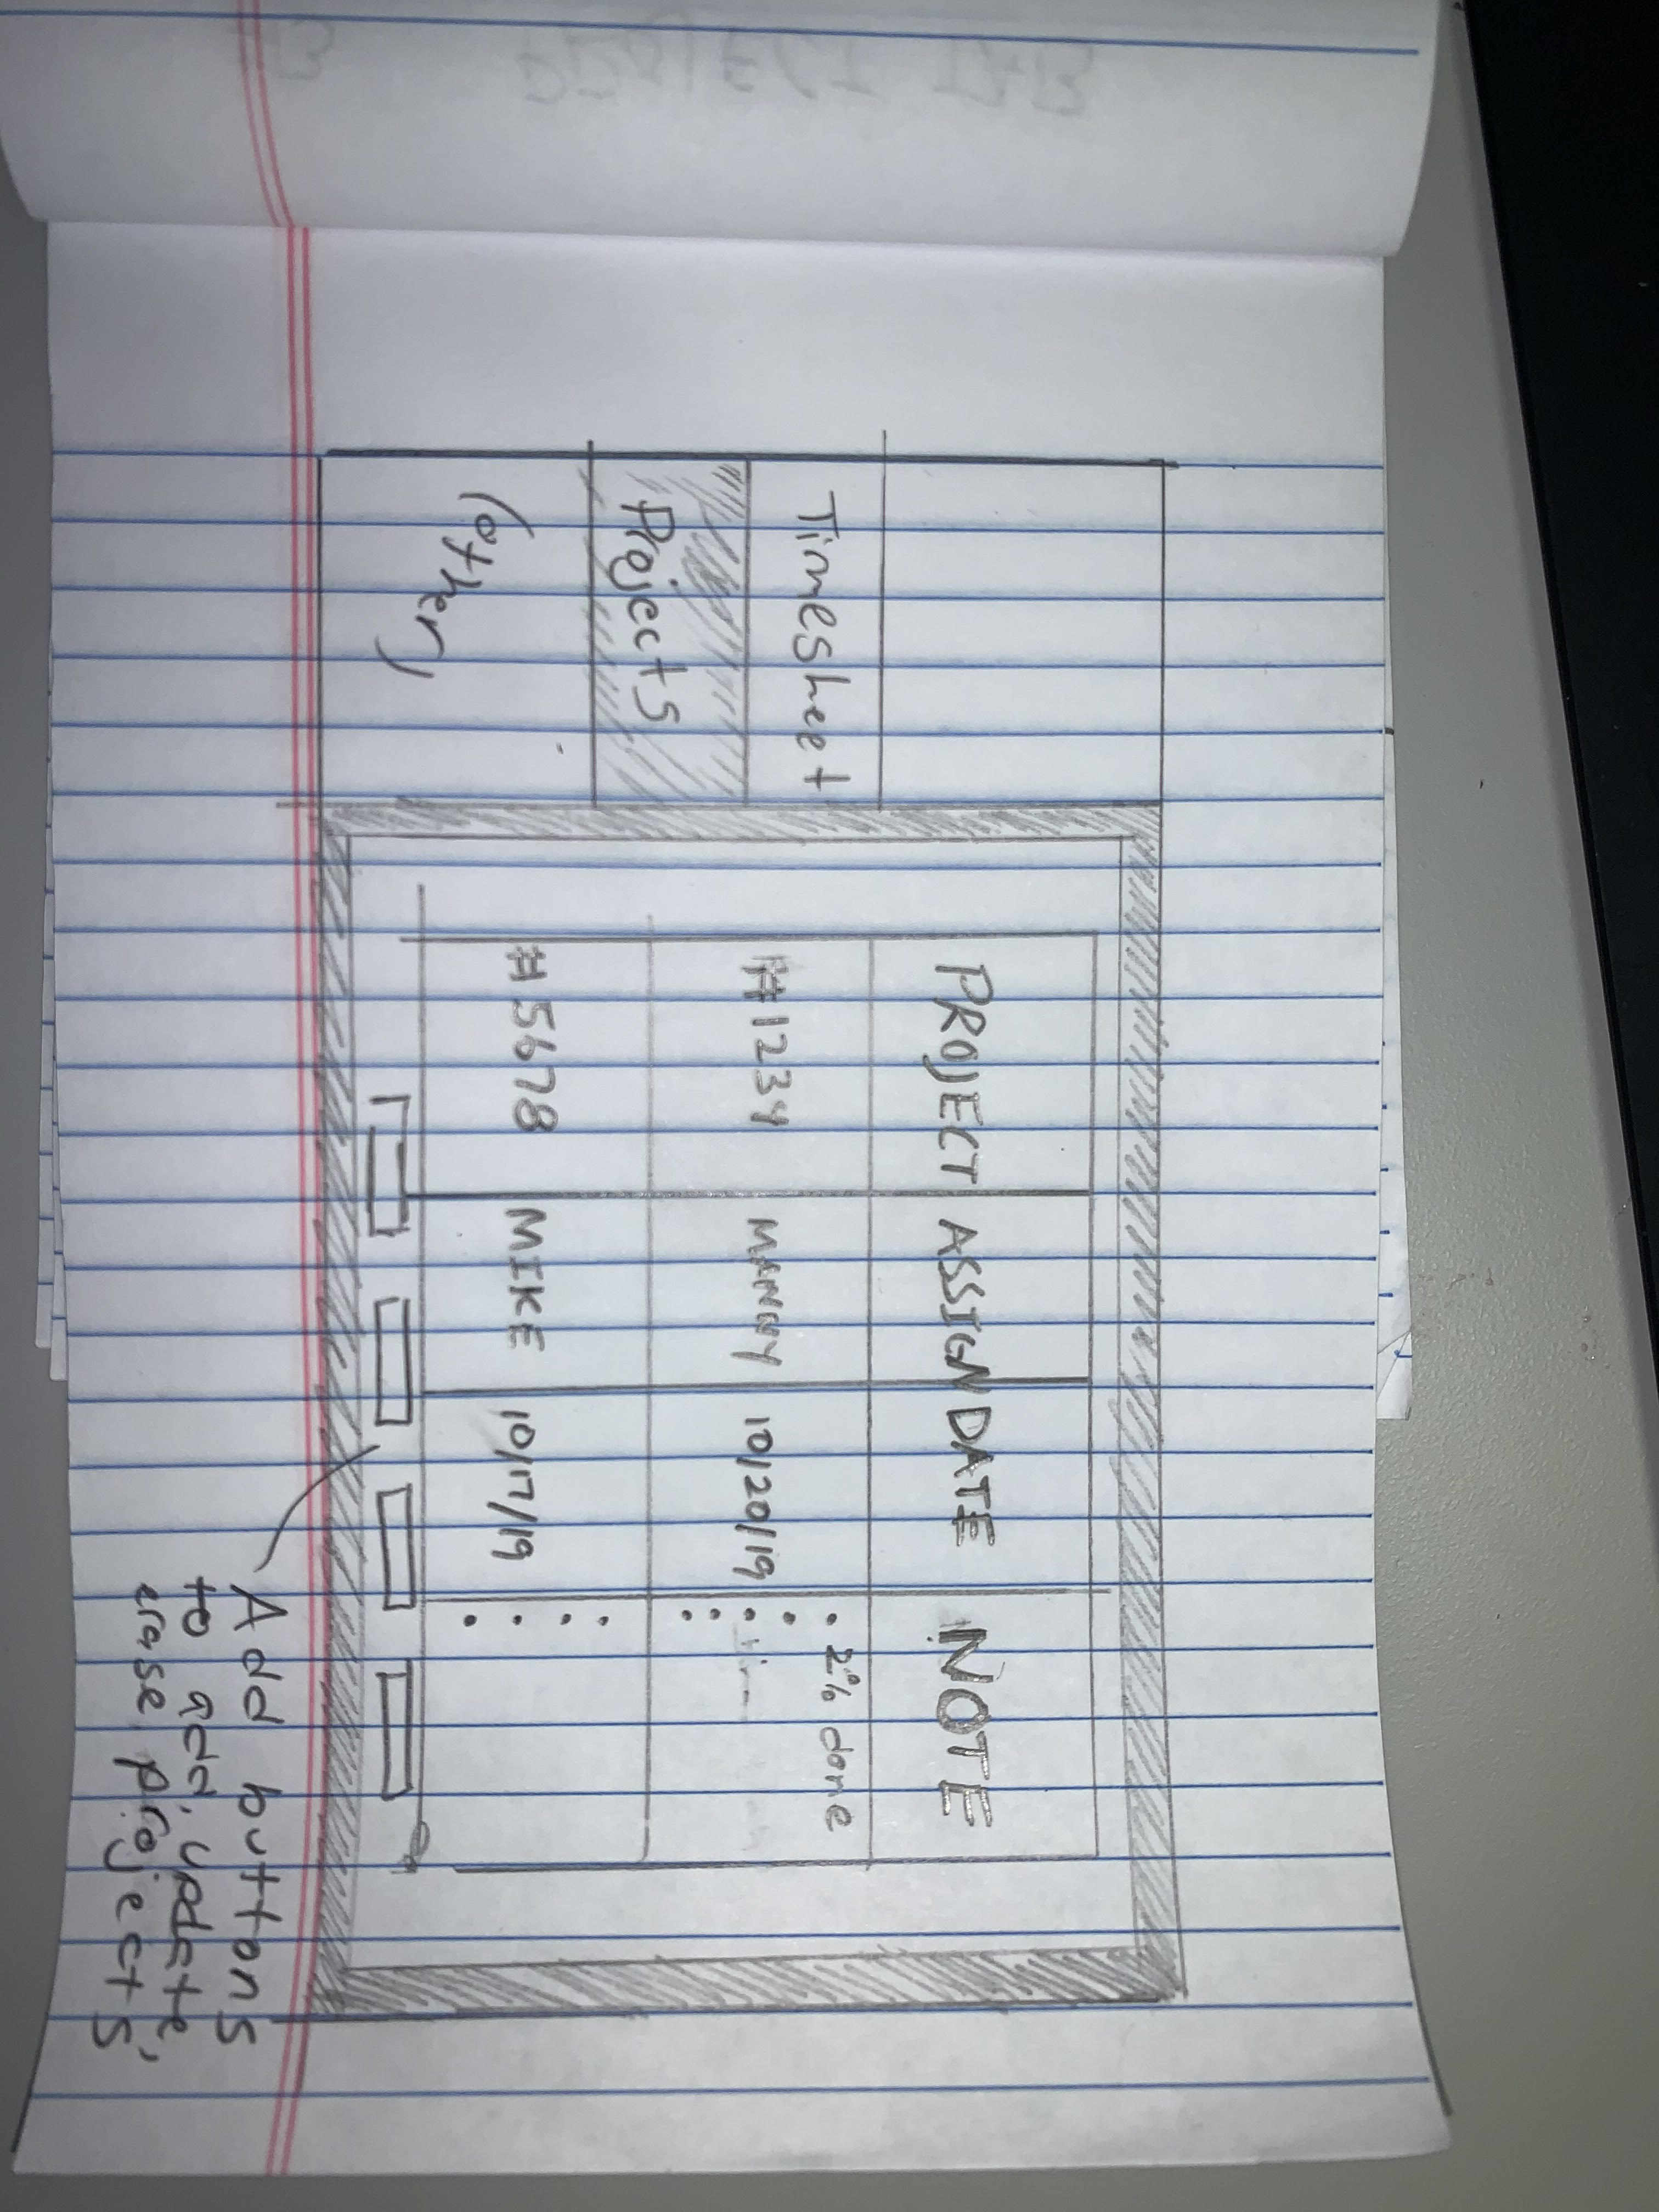 Timesheet
Projects
(other)
PROJECT ASSIGN DATE NOTE
#1234 MANNY 10/20/19 • 2% done
#5678 MIKE 10/17/19
Add buttons
to add, update,
erase projects